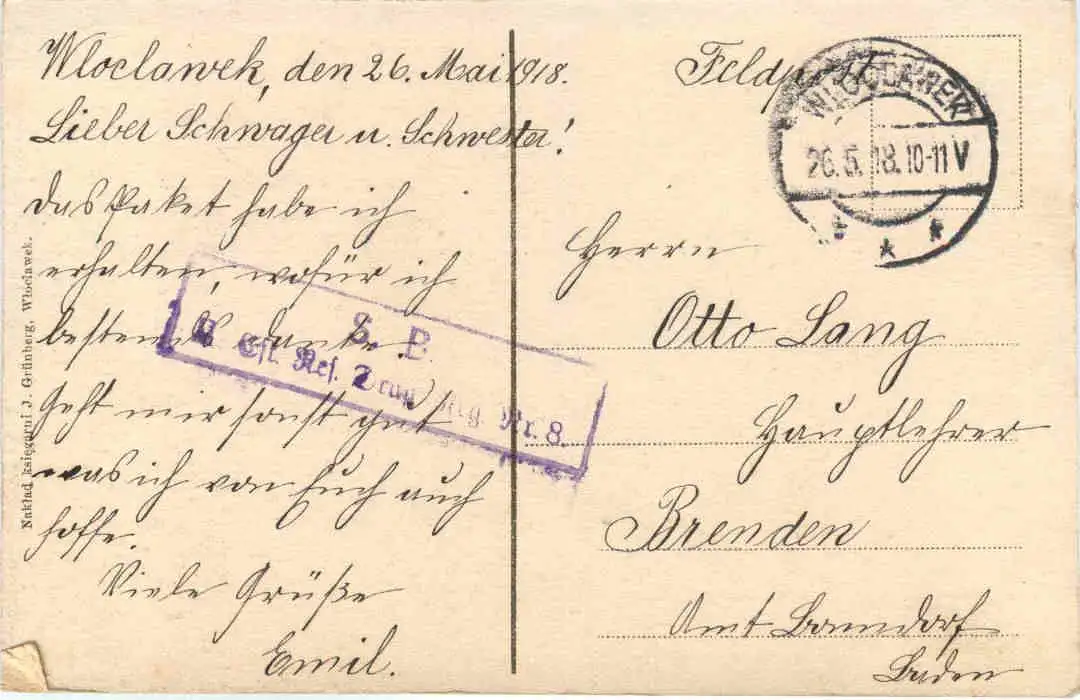 Wloclawek, den 26. Mai 1918.
Lieber Schwager u. Schwester!
Das Paket habe ich
erhalten, wofür ich
bestens danke.
Geht mir sonst gut
was ich von Euch auch
hoffe.
Viele Grüße
Emil.
Feldpost
WLOCLAWEK
26.5.18.10-11 V
Herrn
Otto Lang
Hauptlehrer
Brenden
Amt Bonndorf
Baden
S. B.
Ers. Res. Drag. Reg. Nr. 8.
Nakład księgarni J. Grünberg, Włocławek.